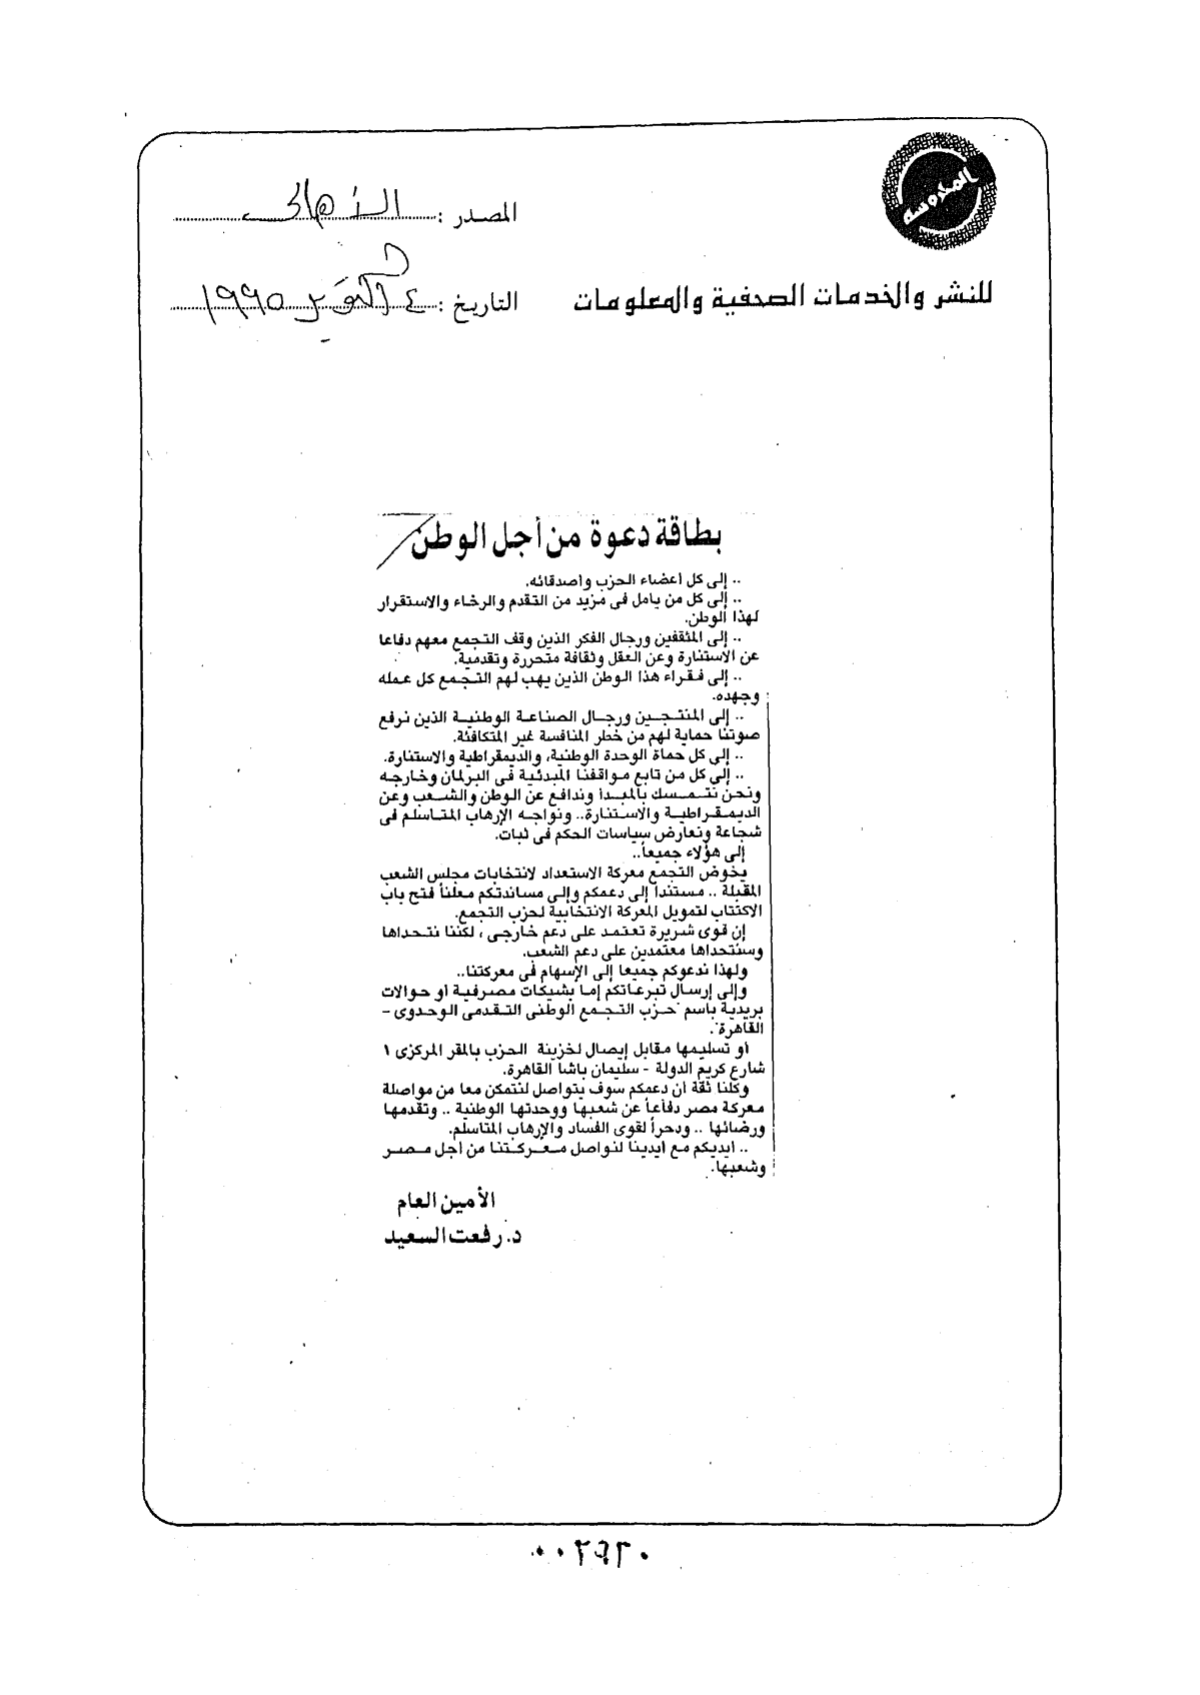 المحروسة
المصدر : الأهالى
للنشر والخدمات الصحفية والمعلومات
التاريخ : ٤ أكتوبر ١٩٩٥
بطاقة دعوة من أجل الوطن
.. إلى كل أعضاء الحزب وأصدقائه.
.. إلى كل من يامل فى مزيد من التقدم والرخاء والاستقرار
لهذا الوطن.
.. إلى المثقفين ورجال الفكر الذين وقف التجمع معهم دفاعا
عن الاستنارة وعن العقل وثقافة متحررة وتقدمية.
.. إلى فقراء هذا الوطن الذين يهب لهم التجمع كل عمله
وجهده.
.. إلى المنتجين ورجال الصناعة الوطنية الذين نرفع
صوتنا حماية لهم من خطر المنافسة غير المتكافئة.
.. إلى كل حماة الوحدة الوطنية، والديمقراطية والاستنارة.
.. إلى كل من تابع مواقفنا المبدئية فى البرلمان وخارجه
ونحن نتمسك بالمبدا وندافع عن الوطن والشعب وعن
الديمقراطية والاستنارة.. ونواجه الإرهاب المتاسلم فى
شجاعة ونعارض سياسات الحكم فى ثبات.
إلى هؤلاء جميعاً..
يخوض التجمع معركة الاستعداد لانتخابات مجلس الشعب
المقبلة .. مستنداً إلى دعمكم وإلى مساندتكم معلناً فتح باب
الاكتتاب لتمويل المعركة الانتخابية لحزب التجمع.
إن قوى شريرة تعتمد على دعم خارجى ، لكننا نتحداها
وسنتحداها معتمدين على دعم الشعب.
ولهذا ندعوكم جميعا إلى الإسهام فى معركتنا..
وإلى إرسال تبرعاتكم إما بشيكات مصرفية او حوالات
بريدية باسم "حزب التجمع الوطنى التقدمى الوحدوى -
القاهرة".
أو تسليمها مقابل إيصال لخزينة الحزب بالمقر المركزى ١
شارع كريم الدولة - سليمان باشا القاهرة.
وكلنا ثقة أن دعمكم سوف يتواصل لنتمكن معا من مواصلة
معركة مصر دفاعاً عن شعبها ووحدتها الوطنية .. وتقدمها
ورضائها .. ودحراً لقوى الفساد والإرهاب المتاسلم.
.. ايديكم مع ايدينا لنواصل معركتنا من أجل مصر
وشعبها.
الأمين العام
د. رفعت السعيد
٠٠٢٩٢٠